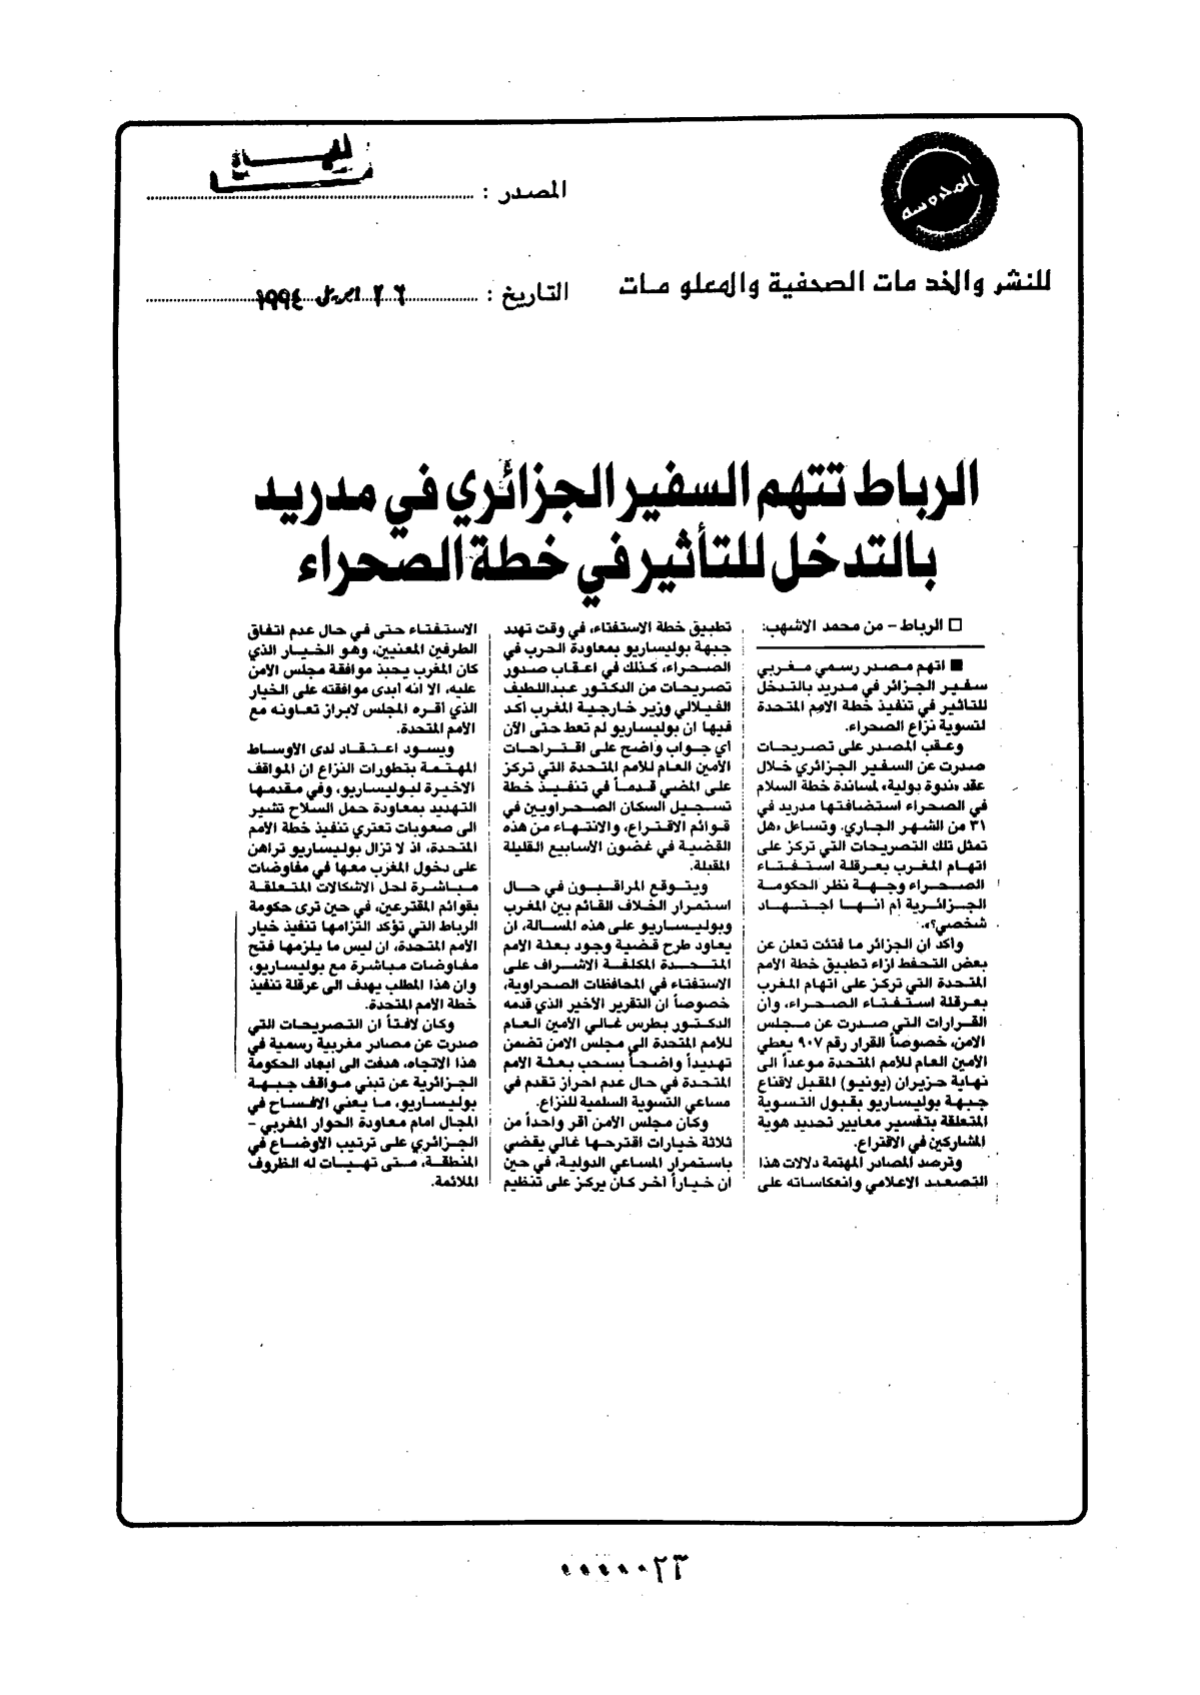 المحروسة
للنشر والخدمات الصحفية والمعلومات
المصدر :
التاريخ : ٢٦ ابريل ١٩٩٤
الرباط تتهم السفير الجزائري في مدريد
بالتدخل للتأثير في خطة الصحراء
□ الرباط - من محمد الاشهب:
■ اتهم مصدر رسمي مغربي
سفير الجزائر في مدريد بالتدخل
للتاثير في تنفيذ خطة الامم المتحدة
لتسوية نزاع الصحراء.
وعقب المصدر على تصريحات
صدرت عن السفير الجزائري خلال
عقد «ندوة دولية» لمساندة خطة السلام
في الصحراء استضافتها مدريد في
٣١ من الشهر الجاري. وتساءل «هل
تمثل تلك التصريحات التي تركز على
اتهام المغرب بعرقلة استفتاء
الصحراء وجهة نظر الحكومة
الجزائرية أم انها اجتهاد
شخصي؟».
واكد ان الجزائر ما فتئت تعلن عن
بعض التحفظ ازاء تطبيق خطة الأمم
المتحدة التي تركز على اتهام المغرب
بعرقلة استفتاء الصحراء، وان
القرارات التي صدرت عن مجلس
الامن، خصوصاً القرار رقم ٩٠٧ يعطي
الأمين العام للأمم المتحدة موعداً الى
نهاية حزيران (يونيو) المقبل لاقناع
جبهة بوليساريو بقبول التسوية
المتعلقة بتفسير معايير تحديد هوية
المشاركين في الاقتراع.
وترصد المصادر المهتمة دلالات هذا
التصعيد الاعلامي وانعكاساته على
تطبيق خطة الاستفتاء، في وقت تهدد
جبهة بوليساريو بمعاودة الحرب في
الصحراء، كذلك في اعقاب صدور
تصريحات من الدكتور عبداللطيف
الفيلالي وزير خارجية المغرب أكد
فيها ان بوليساريو لم تعط حتى الآن
أي جواب واضح على اقتراحات
الأمين العام للأمم المتحدة التي تركز
على المضي قدماً في تنفيذ خطة
تسجيل السكان الصحراويين في
قوائم الاقتراع، والانتهاء من هذه
القضية في غضون الأسابيع القليلة
المقبلة.
ويتوقع المراقبون في حال
استمرار الخلاف القائم بين المغرب
وبوليساريو على هذه المسالة، ان
يعاود طرح قضية وجود بعثة الامم
المتحدة المكلفة الاشراف على
الاستفتاء في المحافظات الصحراوية،
خصوصاً ان التقرير الأخير الذي قدمه
الدكتور بطرس غالي الأمين العام
للأمم المتحدة الى مجلس الامن تضمن
تهديداً واضحاً بسحب بعثة الامم
المتحدة في حال عدم احراز تقدم في
مساعي التسوية السلمية للنزاع.
وكان مجلس الامن أقر واحداً من
ثلاثة خيارات اقترحها غالي يقضي
باستمرار المساعي الدولية، في حين
ان خياراً آخر كان يركز على تنظيم
الاستفتاء حتى في حال عدم اتفاق
الطرفين المعنيين، وهو الخيار الذي
كان المغرب يحبذ موافقة مجلس الامن
عليه، الا انه أبدى موافقته على الخيار
الذي أقره المجلس لابراز تعاونه مع
الأمم المتحدة.
ويسود اعتقاد لدى الأوساط
المهتمة بتطورات النزاع ان المواقف
الاخيرة لبوليساريو، وفي مقدمها
التهديد بمعاودة حمل السلاح تشير
الى صعوبات تعتري تنفيذ خطة الأمم
المتحدة، اذ لا تزال بوليساريو تراهن
على دخول المغرب معها في مفاوضات
مباشرة لحل الاشكالات المتعلقة
بقوائم المقترعين، في حين ترى حكومة
الرباط التي تؤكد التزامها تنفيذ خيار
الأمم المتحدة، ان ليس ما يلزمها فتح
مفاوضات مباشرة مع بوليساريو،
وان هذا المطلب يهدف الى عرقلة تنفيذ
خطة الامم المتحدة.
وكان لافتاً ان التصريحات التي
صدرت عن مصادر مغربية رسمية في
هذا الاتجاه، هدفت الى ابعاد الحكومة
الجزائرية عن تبني مواقف جبهة
بوليساريو، ما يعني الافساح في
المجال امام معاودة الحوار المغربي -
الجزائري على ترتيب الأوضاع في
المنطقة، متى تهيات له الظروف
الملائمة.
٠٠٠٠٠٢٣